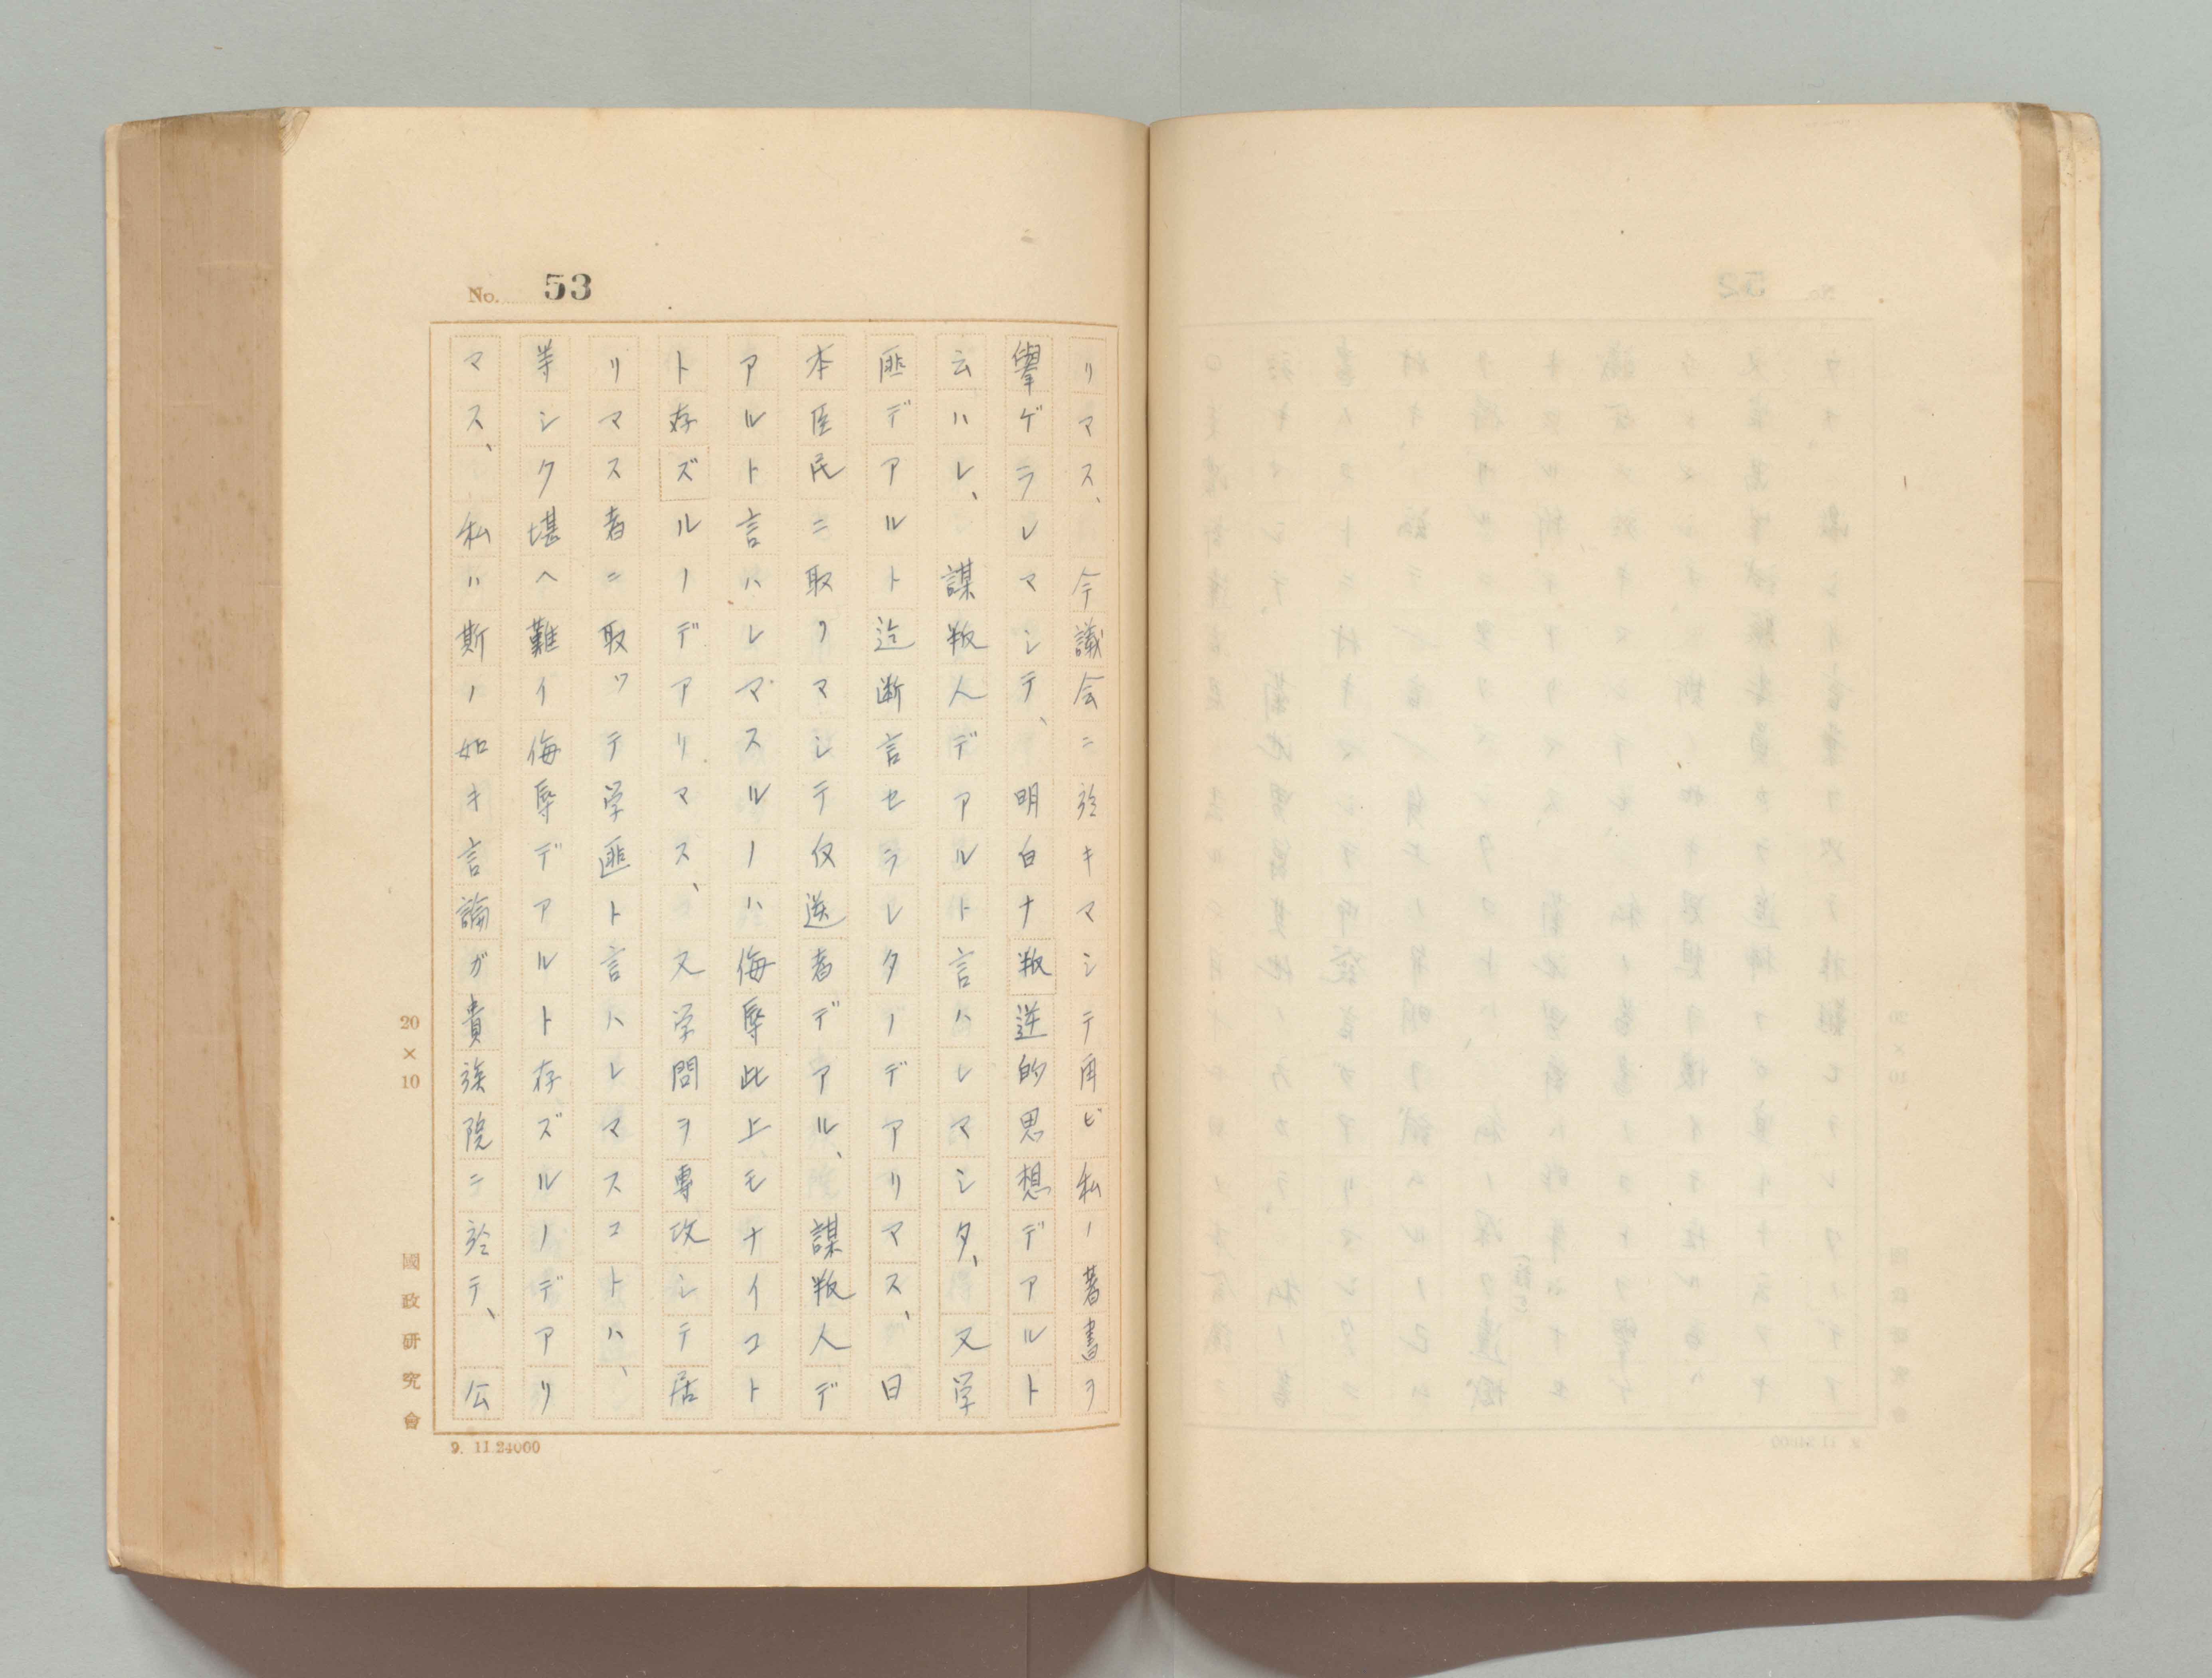 No. 53
リマス、今議会ニ於キマシテ再ビ私ノ著書ヲ
擧ゲラレマシテ、明白ナ叛逆的思想デアルト
云ハレ、謀叛人デアルト言ハレマシタ、又学
匪デアルト迄断言セラレタノデアリマス、日
本臣民ニ取リマシテ反逆者デアル、謀叛人デ
アルト言ハレマスルノハ侮辱此上モナイコト
ト存ズルノデアリマス、又学問ヲ専攻シテ居
リマス者ニ取ッテ学匪ト言ハレマスコトハ、
等シク堪ヘ難イ侮辱デアルト存ズルノデアリ
マス、私ハ斯ノ如キ言論ガ貴族院ニ於テ、公
20×10
國政研究會
9. 11.24000